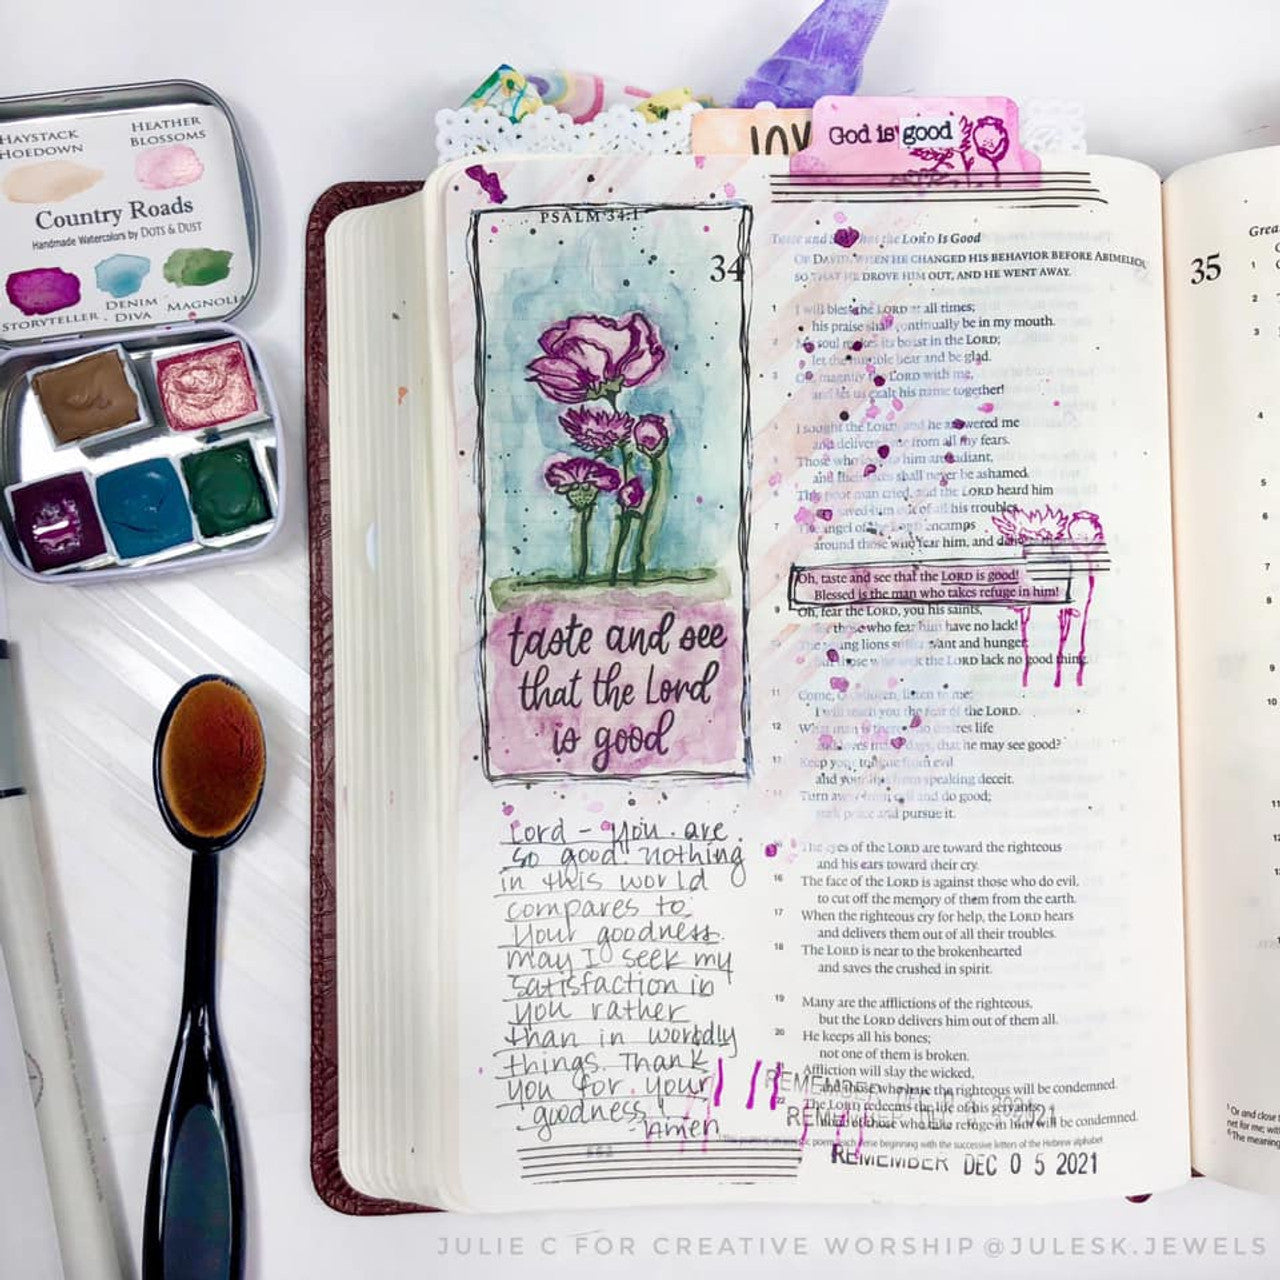 HAYSTACK
HOEDOWN
HEATHER
BLOSSOMS
Country Roads
Handmade Watercolors by DOTS & DUST
STORYTELLER
DENIM
DIVA
MAGNOLIA
LOV
God is good
PSALM 34:1
34
taste and see
that the Lord
is good
Lord - You are
so good. nothing
in this world
compares to
Your goodness.
may I seek my
satisfaction in
you rather
than in worldly
things. Thank
you for your
goodness!
Amen
Taste and See That the LORD Is Good
OF DAVID, WHEN HE CHANGED HIS BEHAVIOR BEFORE ABIMELECH,
SO THAT HE DROVE HIM OUT, AND HE WENT AWAY.
1 I will bless the LORD at all times;
his praise shall continually be in my mouth.
2 My soul makes its boast in the LORD;
let the humble hear and be glad.
3 Oh, magnify the LORD with me,
and let us exalt his name together!
4 I sought the LORD, and he answered me
and delivered me from all my fears.
5 Those who look to him are radiant,
and their faces shall never be ashamed.
6 This poor man cried, and the LORD heard him
and saved him out of all his troubles.
7 The angel of the LORD encamps
around those who fear him, and
Oh, taste and see that the LORD is good!
Blessed is the man who takes refuge in him!
9 Oh, fear the LORD, you his saints,
for those who fear him have no lack!
The young lions suffer want and hunger;
but those who seek the LORD lack no good thing.
11 Come, O children, listen to me;
I will teach you the fear of the LORD.
12 What man is there who desires life
and loves many days, that he may see good?
13 Keep your tongue from evil
and your lips from speaking deceit.
14 Turn away from evil and do good;
seek peace and pursue it.
The eyes of the LORD are toward the righteous
and his ears toward their cry.
16 The face of the LORD is against those who do evil,
to cut off the memory of them from the earth.
17 When the righteous cry for help, the LORD hears
and delivers them out of all their troubles.
18 The LORD is near to the brokenhearted
and saves the crushed in spirit.
19 Many are the afflictions of the righteous,
but the LORD delivers him out of them all.
20 He keeps all his bones;
not one of them is broken.
Affliction will slay the wicked,
and those who hate the righteous will be condemned.
22 The LORD redeems the life of his servants;
none of those who take refuge in him will be condemned.
REMEMBER
REMEMBER
REMEMBER DEC 0 5 2021
35
1
2
3
4
5
6
7
8
9
10
11
12
13
JULIE C FOR CREATIVE WORSHIP @JULESK.JEWELS